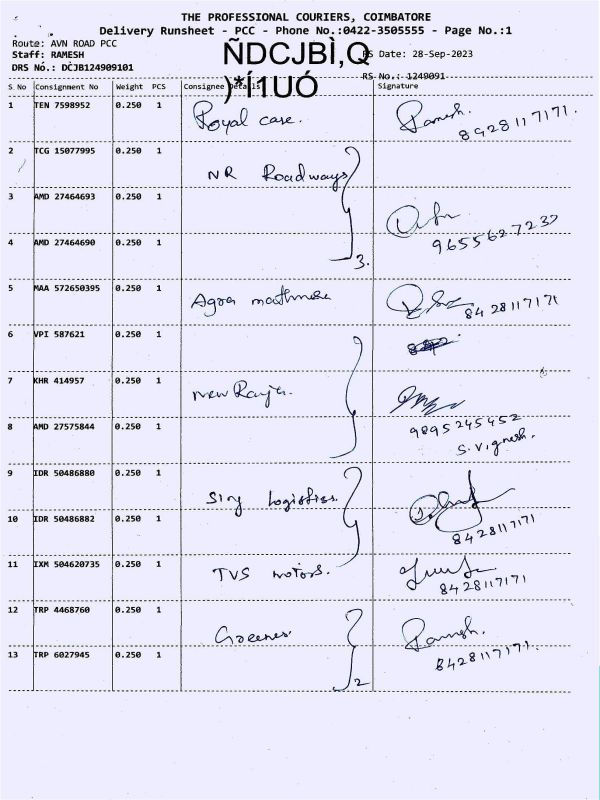 THE PROFESSIONAL COURIERS, COIMBATORE
Delivery Runsheet - PCC - Phone No.:0422-3505555 - Page No.:1
Route: AVN ROAD PCC
Staff: RAMESH
DRS No.: DCJB124909101
ÑDCJBÌ,Q
)*Í1UÓ
RS Date: 28-Sep-2023
RS No.: 1249091
S.No Consignment No Weight PCS Consignee Details Signature
1 TEN 7598952 0.250 1 Royal care. Ramesh. 8428117171.
2 TCG 15077995 0.250 1 NR Roadways
3 AMD 27464693 0.250 1
4 AMD 27464690 0.250 1 3. 9655627237
5 MAA 572650395 0.250 1 Agra 8428117171
6 VPI 587621 0.250 1
7 KHR 414957 0.250 1 New Rayja.
8 AMD 27575844 0.250 1 9895245452
S. Vignesh.
9 IDR 50486880 0.250 1 Logistics
10 IDR 50486882 0.250 1 8428117171
11 IXM 504620735 0.250 1 TVS motors. 8428117171
12 TRP 4468760 0.250 1 Greenes Ramesh.
13 TRP 6027945 0.250 1 2 8428117171.